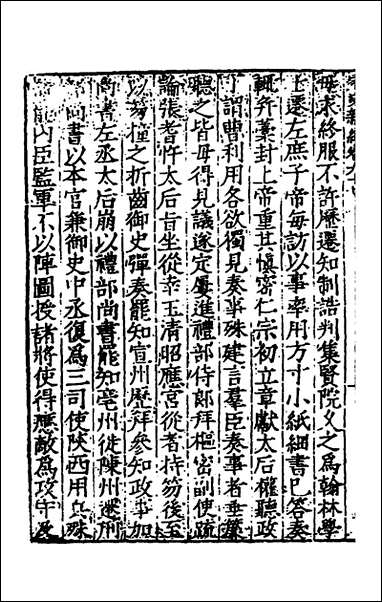 宋史新編卷
毋求終服不許歷遷知制誥判集賢院久之為翰林學
士遷左庶子帝每訪以事率用方寸小紙細書已答奏
輒并藁封上帝重其慎密仁宗初立章獻太后權聽政
丁謂曹利用各欲獨見奏事殊建言羣臣奏事者垂簾
聽之皆毋得見議遂定屢進禮部侍郎拜樞密副使疏
論張耆忤太后旨坐從幸玉清昭應宮從者持笏後至
以笏撞之折齒御史彈奏罷知宣州歷拜參知政事加
尚書左丞太后崩以禮部尚書罷知亳州徙陳州遷刑
部尚書以本官兼御史中丞復為三司使陝西用兵殊
請罷內臣監軍不以陣圖授諸將使得應敵為攻守及